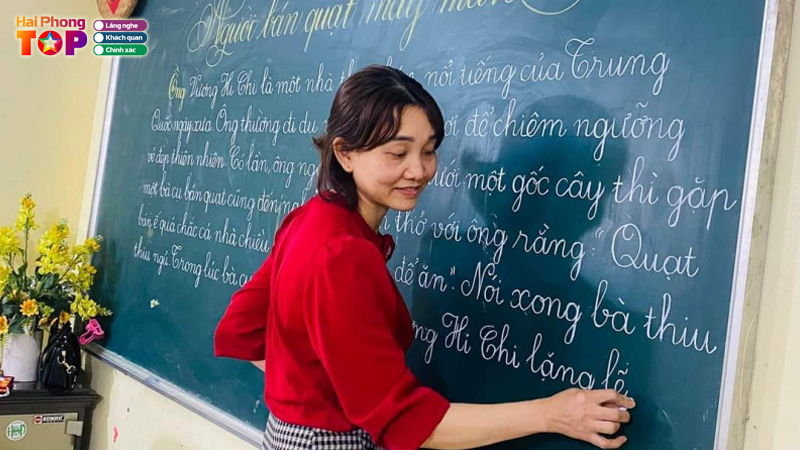 Hai Phong
TOP
Lắng nghe
Khách quan
Chính xác
Người bán quạt may mắn
Ông Vương Hi Chi là một nhà nổi tiếng của Trung
Quốc ngày xưa. Ông thường đi du để chiêm ngưỡng
vẻ đẹp thiên nhiên. Có lần, ông một gốc cây thì gặp
một bà cụ bán quạt cũng đến thở với ông rằng: "Quạt
bán ế quá chắc cả nhà chiều để ăn". Nói xong bà thiu
thiu ngủ. Trong lúc bà Hi Chi lặng lẽ